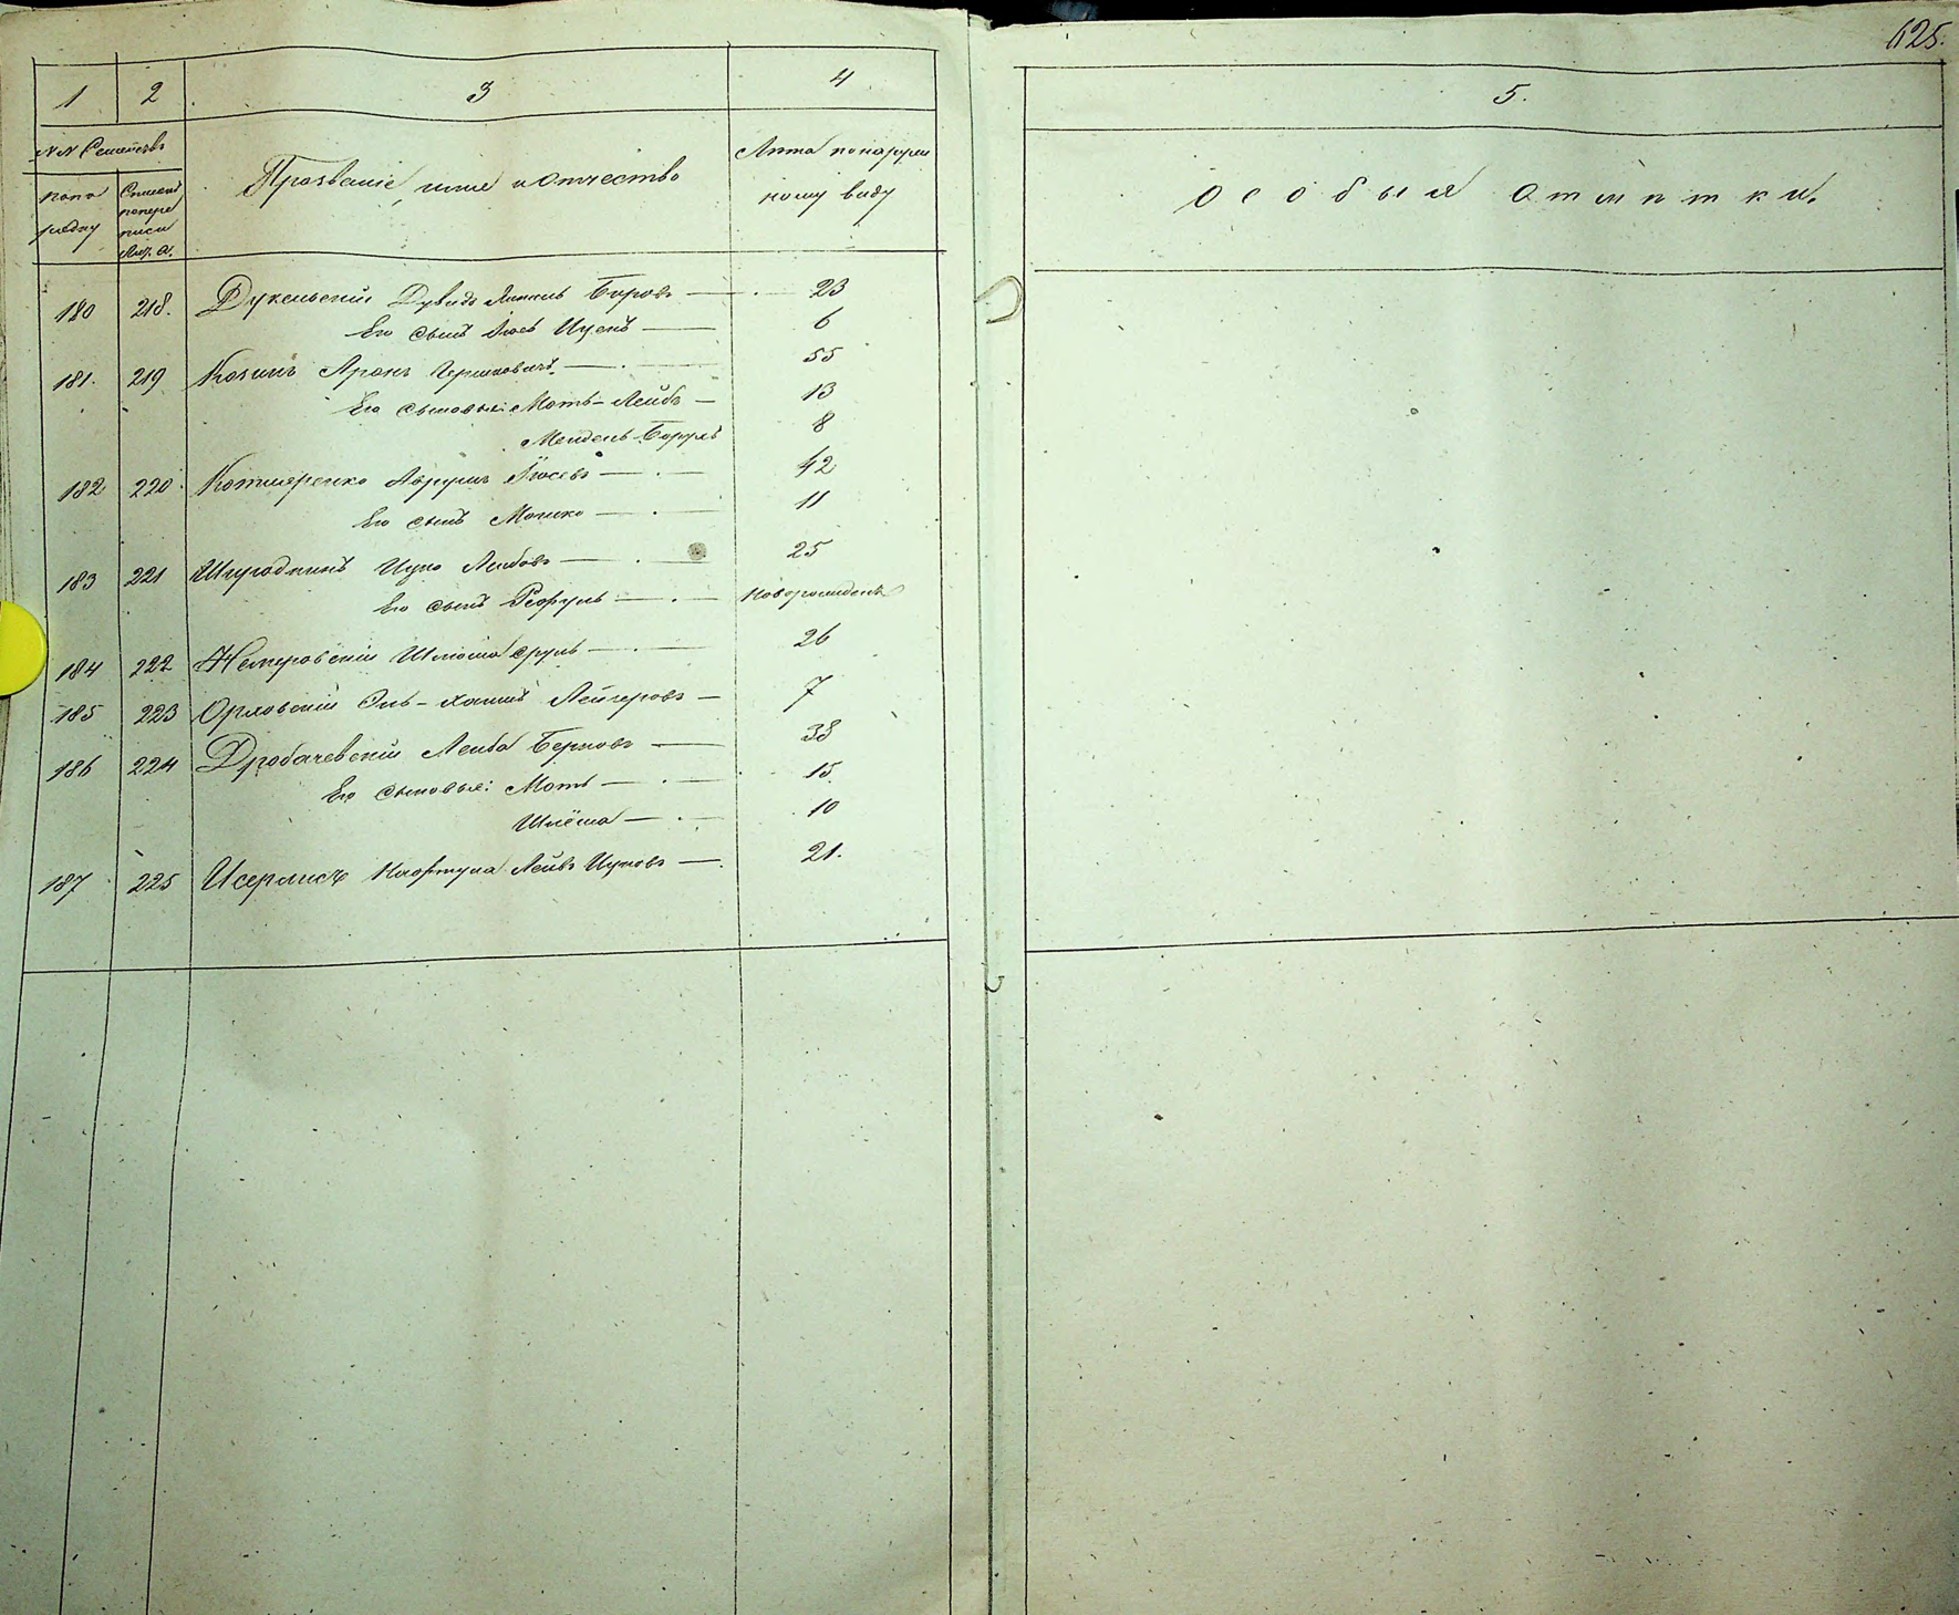 625.
1 2 3 4
5.
№№ Семействъ
Прозваніе, имя и отчество
Лѣта по наруж
ному виду
по по
рядку
Списка
попере
писи
Особыя отмѣтки.
180 218. Дукельскій Дувидъ Янкель Боровъ — 23
Его сынъ Іось Ицекъ — 6
181. 219 Козинъ Аронъ Гершковичъ — 55
Его сыновья: Моть-Лейбъ — 13
Мендель-Борухъ 8
182 220 Котляренко Аврумъ Іосевъ — 42
Его сынъ Мошко — 11
183 221 Шпродкинъ Ицко Лейбовъ — 25
Его сынъ Рефуль — Новорожденъ
184 222 Немеровскій Шлома Сруль — 26
185 223 Орловскій Эль-Хаимъ Лейзеровъ — 7
186 224 Дробачевскій Лейба Берковъ — 38
Его сыновья: Моть — 15
Шлёма — 10
187 225 Исерлисъ Нафтула Лейбъ Ицковъ — 21.